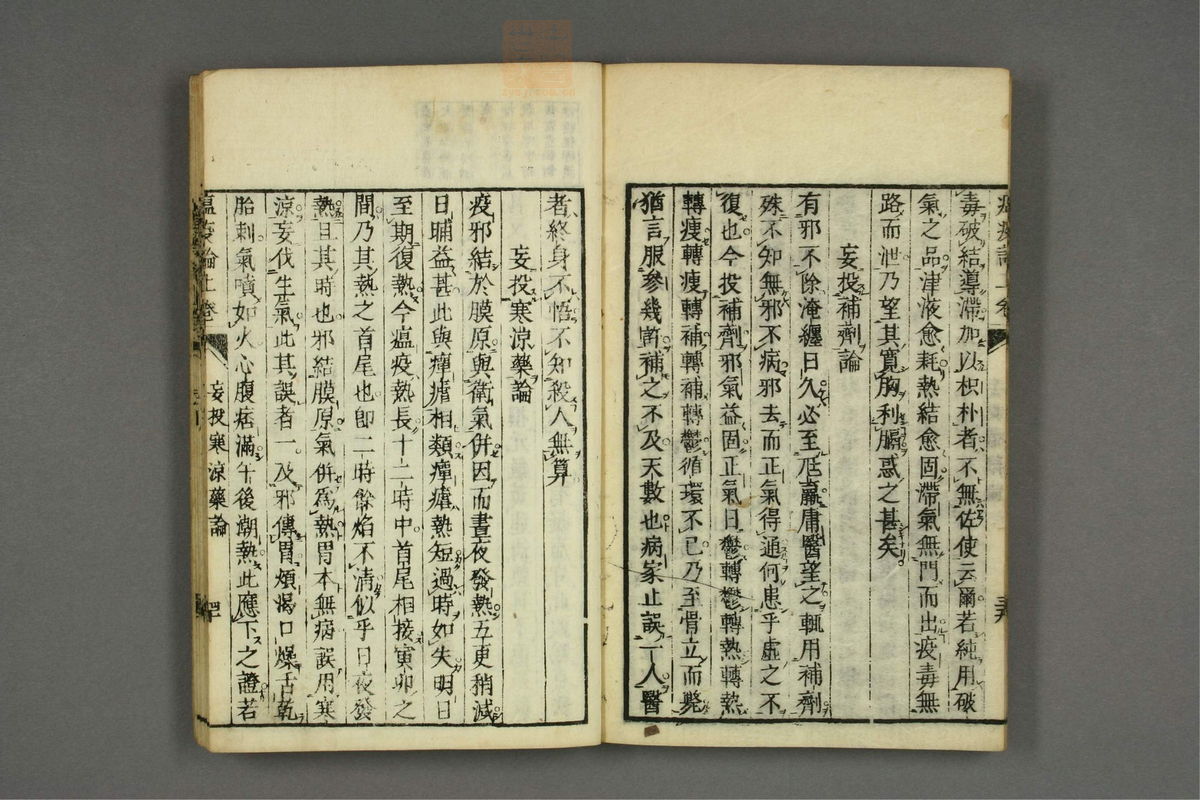 毒破結導滯加以枳朴者不無佐使云爾若純用破
氣之品津液愈耗熱結愈固滯氣無門而出疫毒無
路而泄乃望其寬胸利膈惑之甚矣
妄投補劑論
有邪不除淹纏日久必至尫羸庸醫望之輒用補劑
殊不知無邪不病邪去而正氣得通何患乎虛之不
復也今投補劑邪氣益固正氣日鬱轉鬱轉熱轉熱
轉瘦轉瘦轉補轉補轉鬱循環不已乃至骨立而斃
猶言服參幾許補之不及天數也病家止誤一人醫
者終身不悟不知殺人無算
妄投寒涼藥論
疫邪結於膜原與衛氣併因而晝夜發熱五更稍減
日晡益甚此與癉瘧相類癉瘧熱短過時如失明日
至期復熱今瘟疫熱長十二時中首尾相接寅卯之
間乃其熱之首尾也卽二時餘焰不清似乎日夜發
熱且其時也邪結膜原氣併爲熱胃本無病誤用寒
涼妄伐生氣此其誤者一及邪傳胃煩渴口燥舌乾
胎刺氣噴如火心腹痞滿午後潮熱此應下之證若
瘟疫論上卷
妄投寒涼藥論